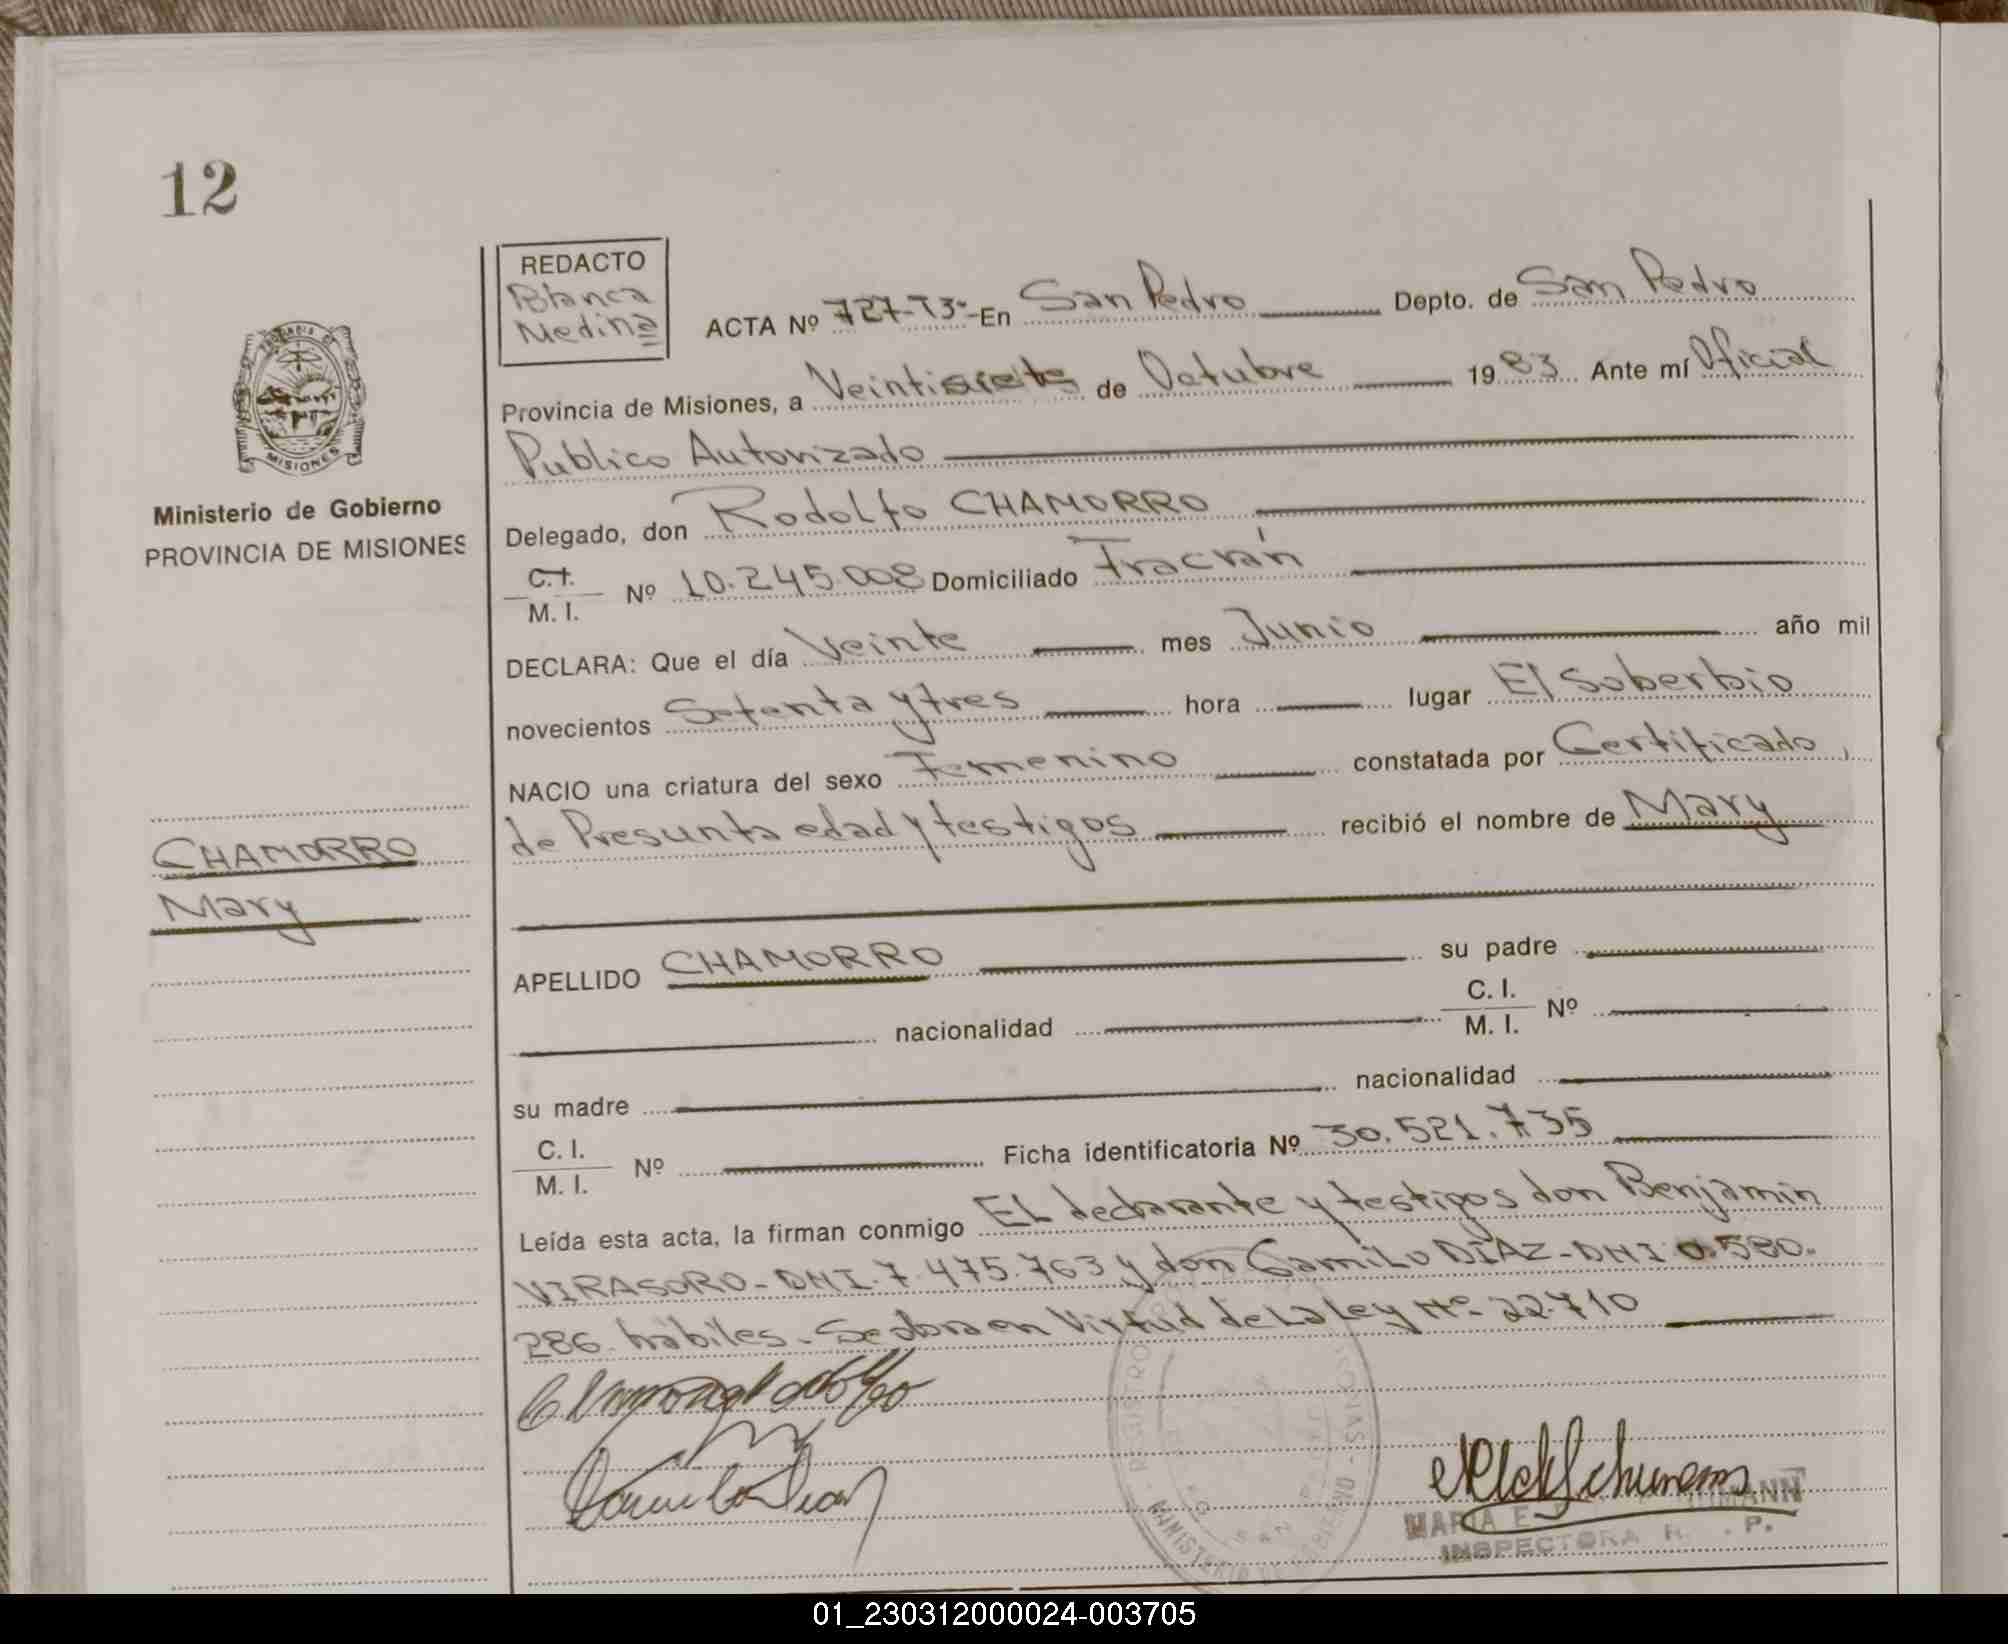 12
REDACTO
Blanca
Medina
ACTA Nº 727-T3º- En San Pedro Depto. de San Pedro
Provincia de Misiones, a Veintisiete de Octubre 1983 Ante mí Oficial
Publico Autorizado
Delegado, don Rodolfo CHAMORRO
C.I.
M. I. Nº 10.245.008 Domiciliado Fracrán
DECLARA: Que el día Veinte mes Junio año mil
novecientos Setenta y tres hora lugar El Soberbio
NACIO una criatura del sexo Femenino constatada por Certificado,
de Presunta edad y testigos recibió el nombre de Mary
APELLIDO CHAMORRO su padre
nacionalidad C. I.
M. I. Nº
su madre nacionalidad
C. I.
M. I. Nº Ficha identificatoria Nº 30.521.735
Leída esta acta, la firman conmigo El declarante y testigos don Benjamin
VIRASORO-DNI.7.475.763 y don Camilo DIAZ-DNI 0.580.
286. hábiles.-Se labra en Virtud de La Ley Nº-22.710
MISIONES
Ministerio de Gobierno
PROVINCIA DE MISIONES
CHAMORRO
Mary
REGISTRO
MINISTERIO DE GOBIERNO
MARIA E.
INSPECTORA R. P.
01_230312000024-003705